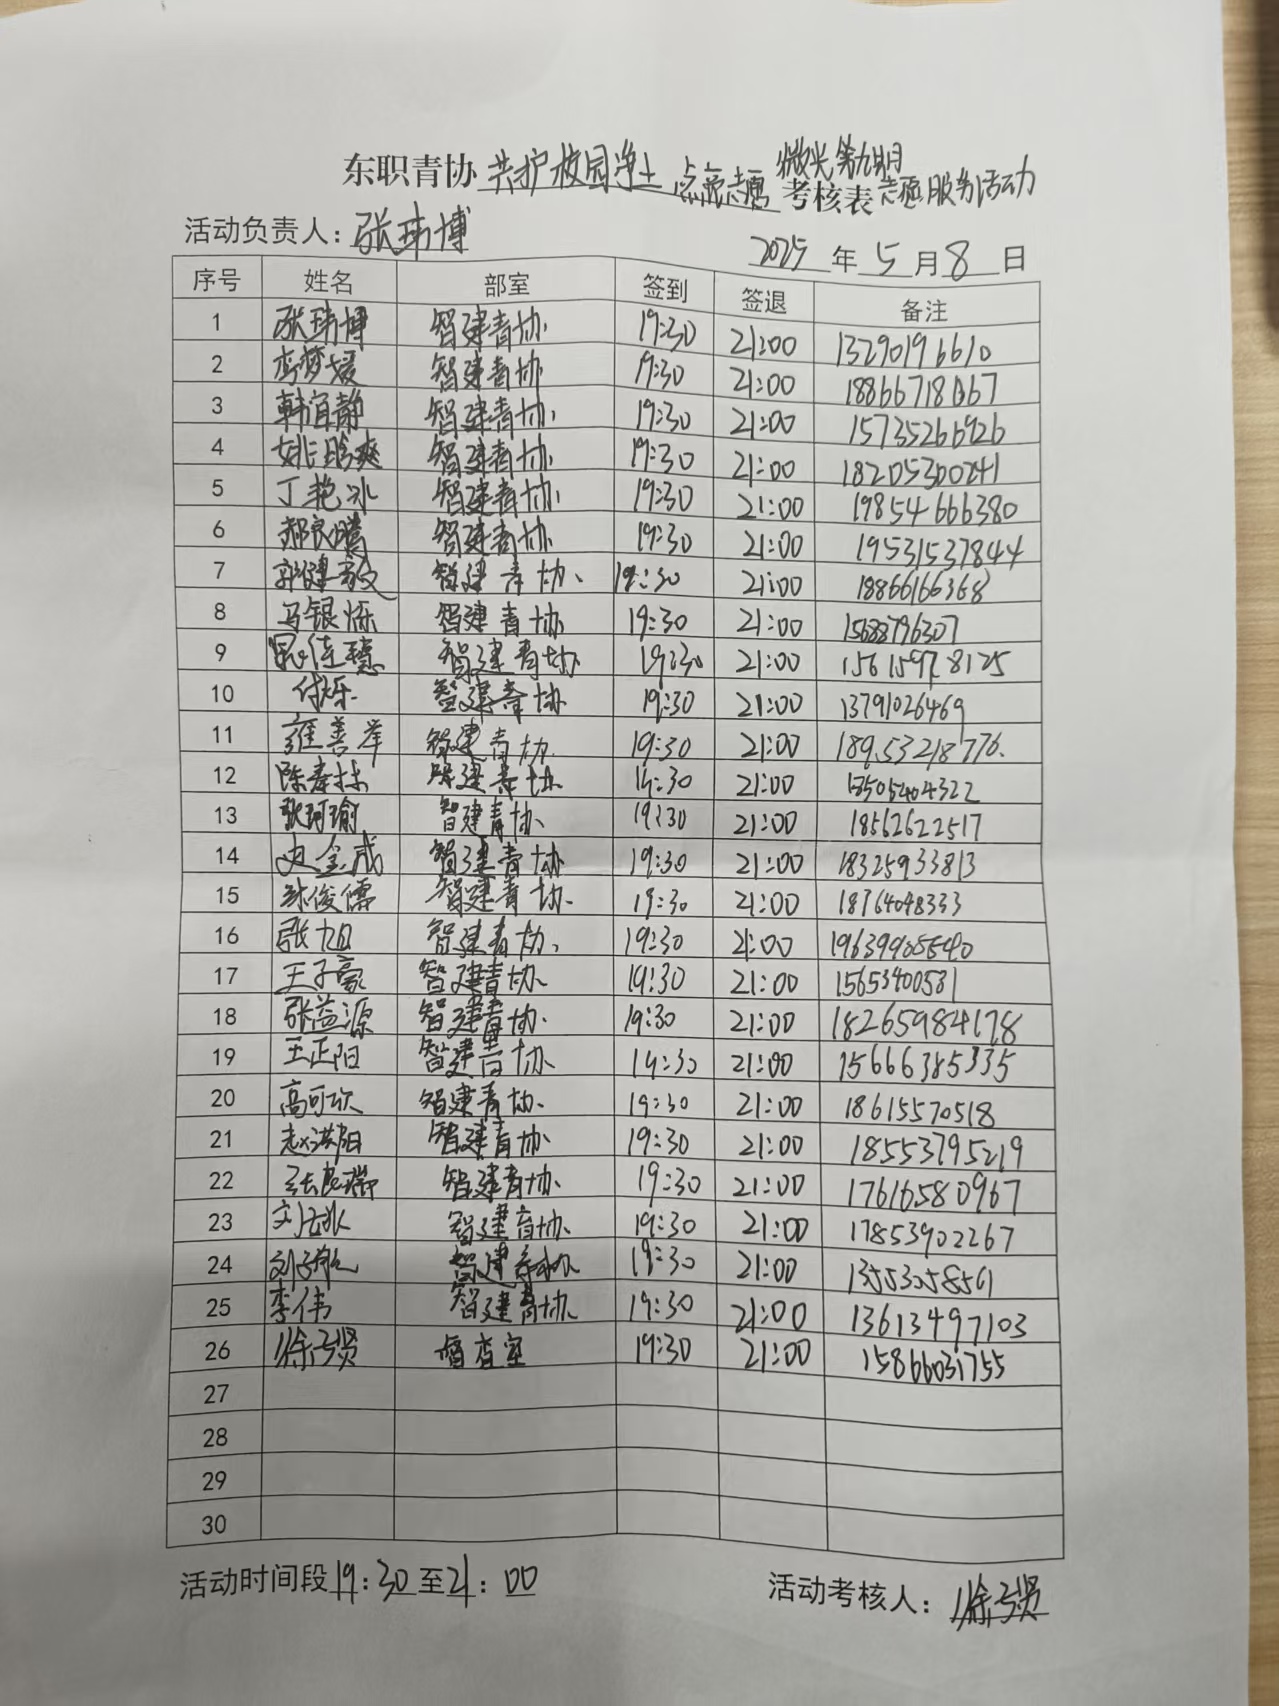 微光第九期
东职青协共护校园净土 点亮志愿 考核表志愿服务活动
活动负责人：张玮博
2025年5月8日
序号 姓名 部室 签到 签退 备注
1 张玮博 智建青协 19:30 21:00 13290196610
2 李梦媛 智建青协 19:30 21:00
3 韩宜静 智建青协 19:30 21:00 15735266926
4 智建青协 19:30 21:00 18205300241
5 丁艳冰 智建青协 19:30 21:00 19854666380
6 郝良腾 智建青协 19:30 21:00 19531537844
7 郭建敏 智建青协 19:30 21:00 18866166368
8 马银烁 智建青协 19:30 21:00 15688796307
9 智建青协 19:30 21:00 15615978125
10 付烁 智建青协 19:30 21:00 13791026469
11 智建青协 19:30 21:00 18953218776
12 智建青协 19:30 21:00 18505404322
13 耿珂瑜 智建青协 19:30 21:00 18562622517
14 史金成 智建青协 19:30 21:00 18325933813
15 智建青协 19:30 21:00 18764048333
16 张旭 智建青协 19:30 21:00
17 王子豪 智建青协 19:30 21:00 15653400581
18 张益源 智建青协 19:30 21:00 18265984178
19 王正阳 智建青协 19:30 21:00 15666385335
20 高可欣 智建青协 19:30 21:00 18615570518
21 赵洪阳 智建青协 19:30 21:00 18553795219
22 智建青协 19:30 21:00 17616580967
23 智建青协 19:30 21:00 17853902267
24 刘子航 智建青协 19:30 21:00 13553058561
25 李伟 智建青协 19:30 21:00 13613497103
26 徐子贤 督查室 19:30 21:00 15866031755
27
28
29
30
活动时间段19:30至21:00
活动考核人：徐子贤